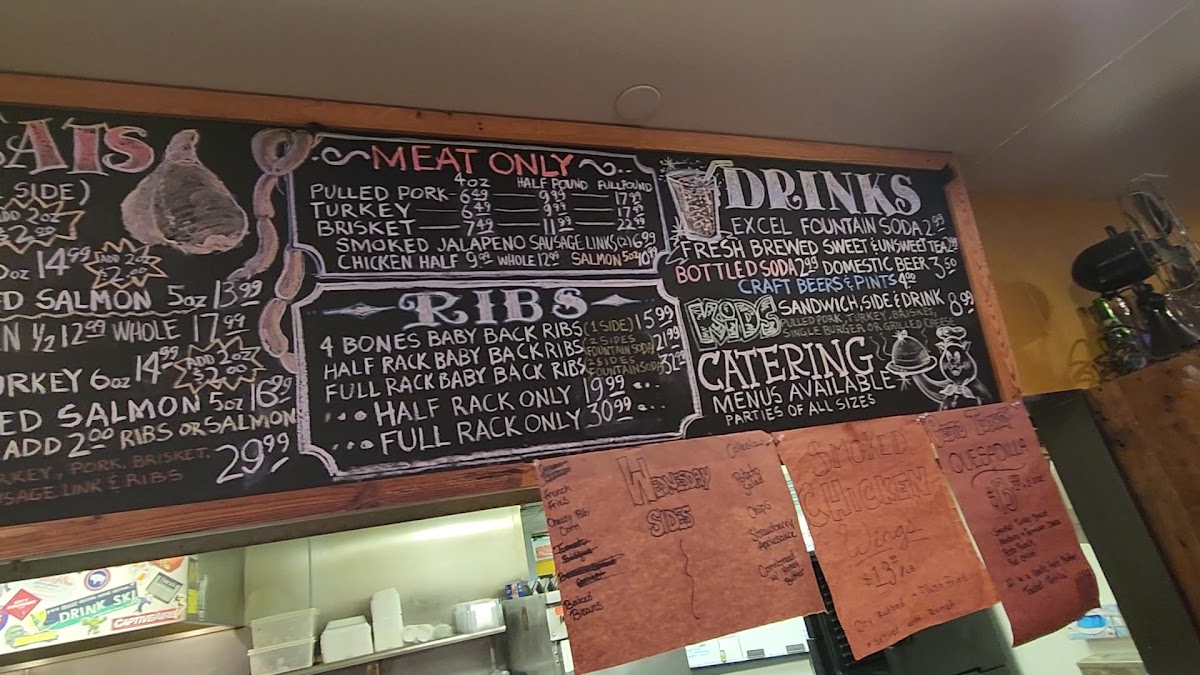 EATS
SIDE)
ADD 2oz
2.00
14.99
ADD 2oz
$2.00
SALMON 5oz 13.99
1/2 12.99 WHOLE 17.99
14.99
ADD 2oz
$2.00
TURKEY 6oz
SALMON 5oz 16.99
ADD 2.00 RIBS OR SALMON
29.99
TURKEY, PORK, BRISKET,
SAUSAGE LINK & RIBS
MEAT ONLY
4oz HALF POUND FULL POUND
PULLED PORK 6.49 9.99 17.99
TURKEY 6.49 9.99 17.99
BRISKET 7.49 11.99 22.99
SMOKED JALAPENO SAUSAGE LINKS (2) 6.99
CHICKEN HALF 9.99 WHOLE 12.99 SALMON 5oz 10.99
RIBS
4 BONES BABY BACK RIBS (1 SIDE) 15.99
HALF RACK BABY BACK RIBS (2 SIDES FOUNTAIN SODA) 21.99
FULL RACK BABY BACK RIBS 2 SIDES FOUNTAIN SODA 32.99
HALF RACK ONLY 19.99
FULL RACK ONLY 30.99
DRINKS
EXCEL FOUNTAIN SODA 2.99
FRESH BREWED SWEET & UNSWEET TEA 2.99
BOTTLED SODA 2.99 DOMESTIC BEER 3.50
CRAFT BEERS & PINTS 4.00
KIDS SANDWICH, SIDE & DRINK 8.99
PULLED PORK, TURKEY, BRISKET,
SINGLE BURGER OR GRILLED CHEESE
CATERING
MENUS AVAILABLE
PARTIES OF ALL SIZES
WEDNESDAY
SIDES
French
Fries
Corn
Baked
Beans
Chips
Strawberry
Applesauce
Cornbread
SMOKED
CHICKEN
Wings
Dry Rubbed
QUESADILLA
DRINK
CAPTIVEAIRE